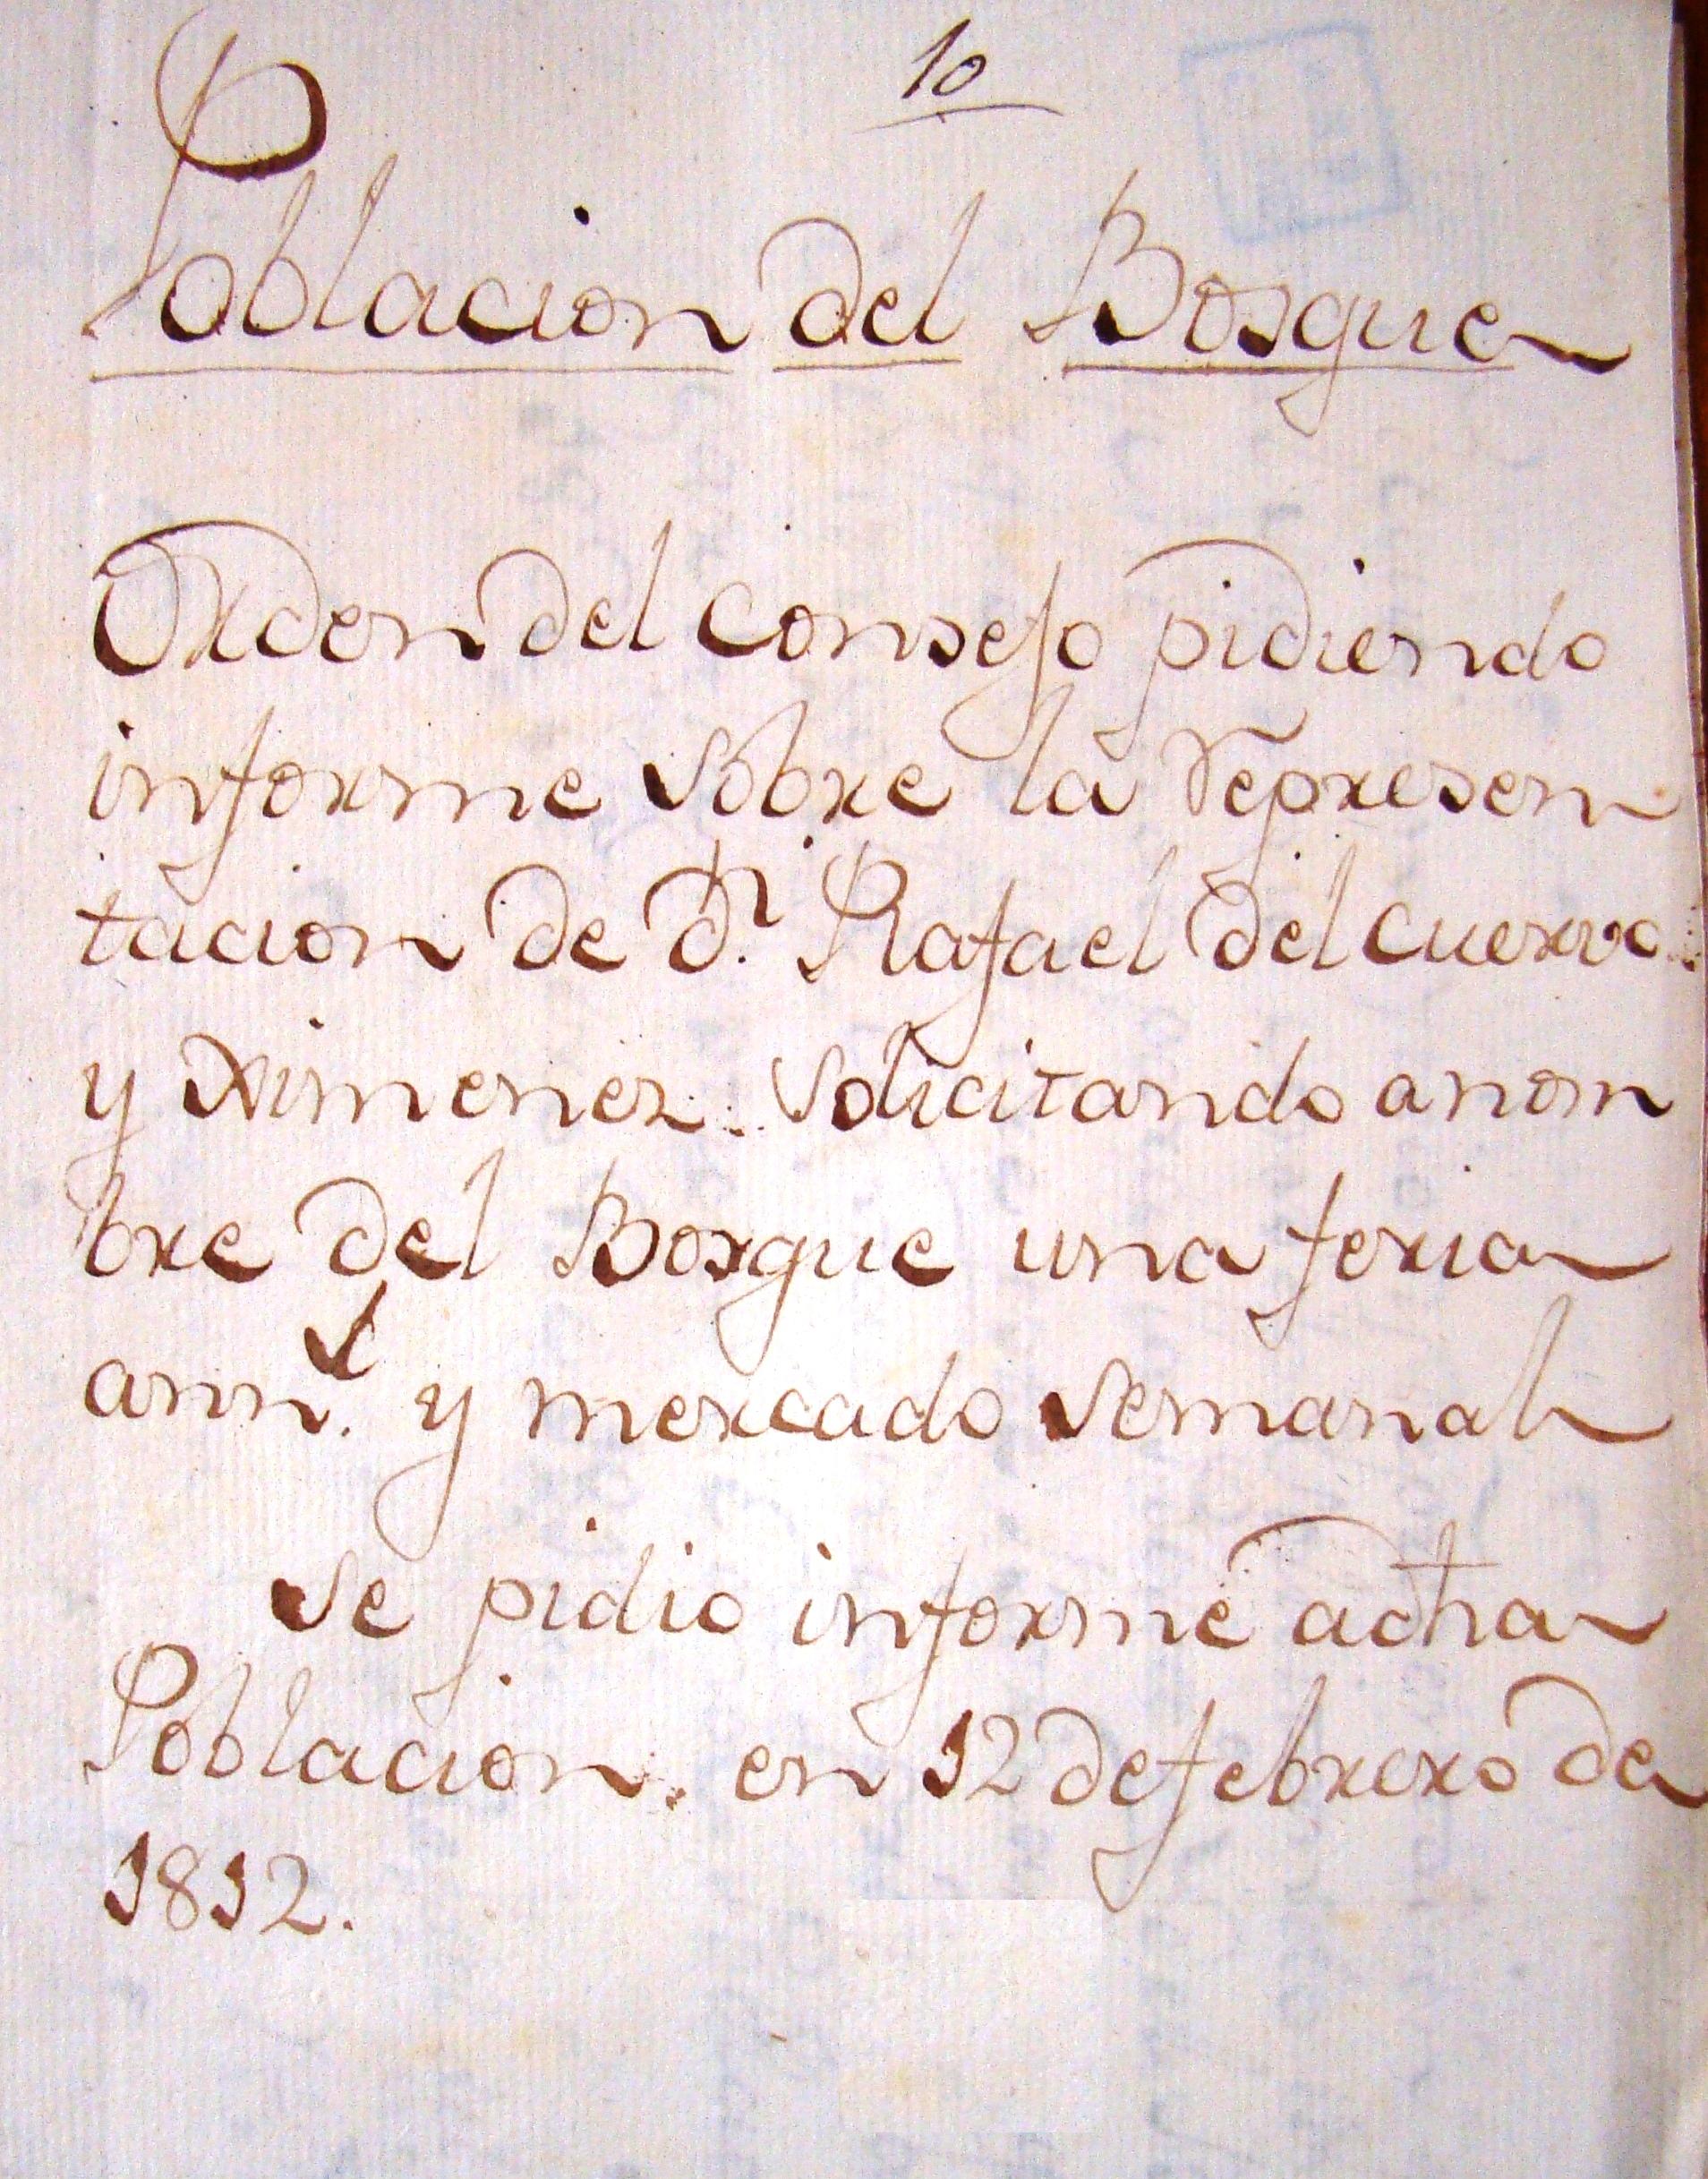 10
Poblacion del Bosque
Orden del Consejo pidiendo
informe sobre la represen
tacion de Dn. Rafael del Cuervo
y Ximenez. solicitando a nom
bre del Bosque una feria
annl. y mercado semanal
se pidio informe a dha
Poblacion. en 12 de febrero de
1812.